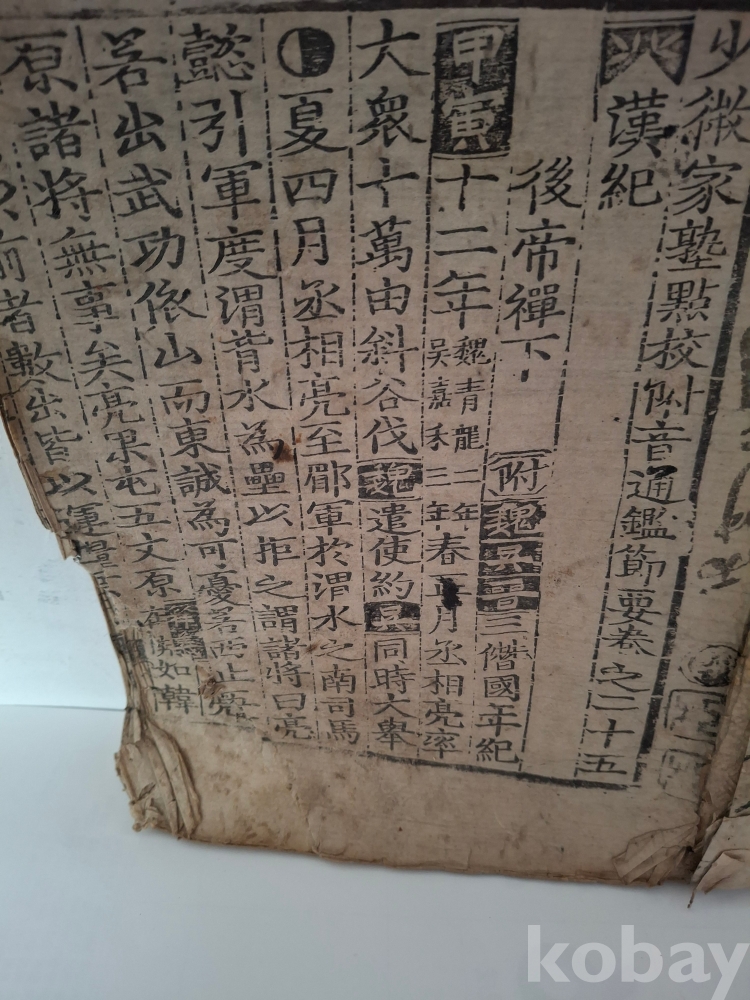 少微家塾點校附音通鑑節要卷之二十五
漢紀
後帝禪下 附魏吳晉三僭國年紀
甲寅十二年魏青龍二年吳嘉禾三年春正月丞相亮率
大衆十萬由斜谷伐魏遣使約吳同時大舉
夏四月丞相亮至郿軍於渭水之南司馬
懿引軍度渭背水為壘以拒之謂諸將曰亮
若出武功依山而東誠為可憂若西上
原諸將無事矣亮果屯五丈原
前者數出皆以運粮
kobay